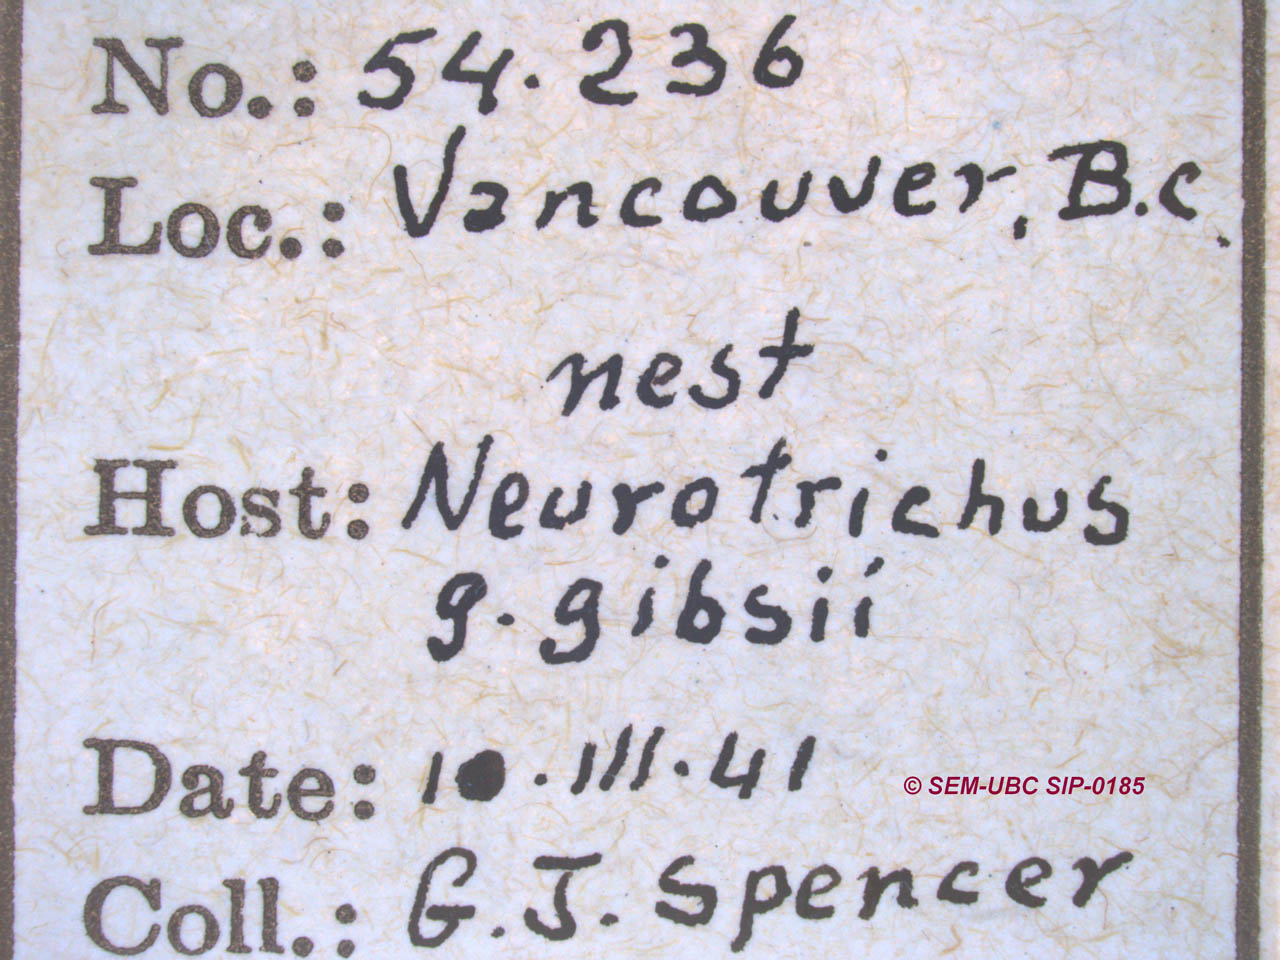 No.: 54.236
Loc.: Vancouver, B.C.
nest
Host: Neurotrichus
g. gibsii
Date: 10.III.41
© SEM-UBC SIP-0185
Coll.: G. J. Spencer